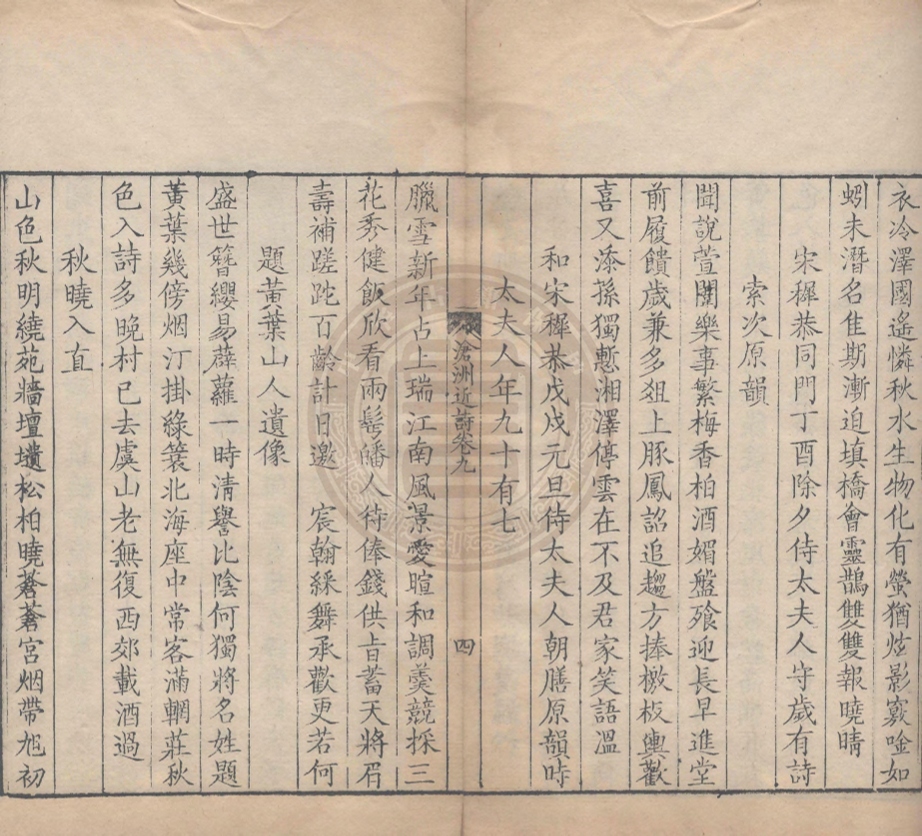 衣冷澤國遙憐秋水生物化有螢猶炫影竅唫如
蚓未潛名隹期漸迫填橋會靈鵲雙雙報曉晴
宋穉恭同門丁酉除夕侍太夫人守歲有詩
索次原韻
聞說萱闈樂事繁梅香柏酒媚盤飱迎長早進堂
前履饋歲兼多俎上豚鳳詔追趨方捧檄板輿歡
喜又添孫獨慙湘澤停雲在不及君家笑語溫
和宋穉恭戊戌元旦侍太夫人朝膳原韻時
太夫人年九十有七
滄洲近詩卷九
四
臘雪新年占上瑞江南風景愛暄和調羹競採三
花秀健飯欣看兩髩皤人待俸錢供旨蓄天將眉
壽補蹉跎百齡計日邀 宸翰綵舞承歡更若何
題黃葉山人遺像
盛世簪纓易薜蘿一時清譽比陰何獨將名姓題
黃葉幾傍烟汀掛綠簑北海座中常客滿輞莊秋
色入詩多晚村已去虞山老無復西郊載酒過
秋曉入直
山色秋明繞苑牆壇壝松柏曉蒼蒼宮烟帶旭初